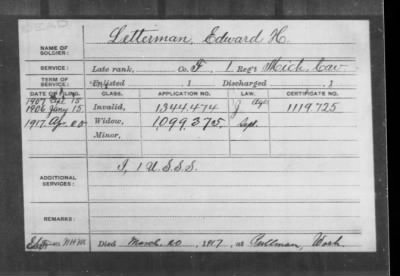 DEAD
NAME OF SOLDIER: Letterman, Edward H.
SERVICE: Late rank, Co. F, 1 Reg't Mich. Cav.
TERM OF SERVICE: Enlisted 1 Discharged , 1
DATE OF FILING. CLASS. APPLICATION NO. LAW. CERTIFICATE NO.
1907 15
1906 15 Invalid, 1344,474 J Age. 1119725
1917 Ap. 20 Widow, 1,099,375, Sept.
Minor,
ADDITIONAL SERVICES: I, 1 U.S.S.S.
REMARKS:
Died March 20, 1917, at Pullman, Wash.